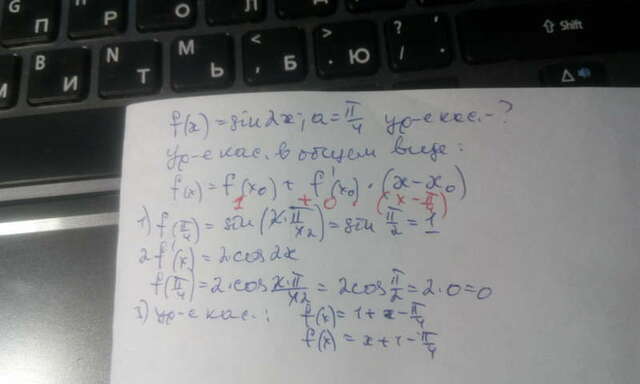 G П
P Р
О
Л
Д
? , /
⇧ Shift
B И
N Т
M Ь
< , Б
> . Ю
f(x) = sin2x; a = π/4 ур-е кас. - ?
ур-е кас. в общем виде:
f(x) = f(x₀) + f'(x₀) · (x - x₀)
1 + 0 · (x - π/4)
1) f(π/4) = sin(2·π/4₂) = sin π/2 = 1
2 f'(x) = 2cos2x
f'(π/4) = 2·cos 2·π/4₂ = 2cos π/2 = 2·0 = 0
3) ур-е кас.: f(x) = 1 + x - π/4
f(x) = x + 1 - π/4